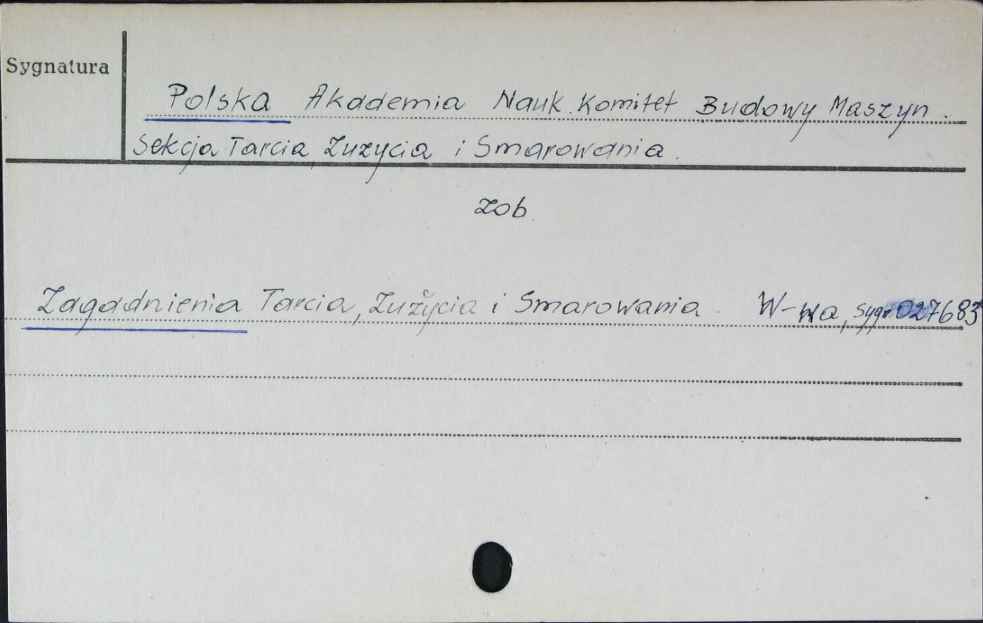 Sygnatura
Polska Akademia Nauk. Komitet Budowy Maszyn.
Sekcja Tarcia, Zużycia i Smarowania.
zob.
Zagadnienia Tarcia, Zużycia i Smarowania. W-wa, Sygn. 027683